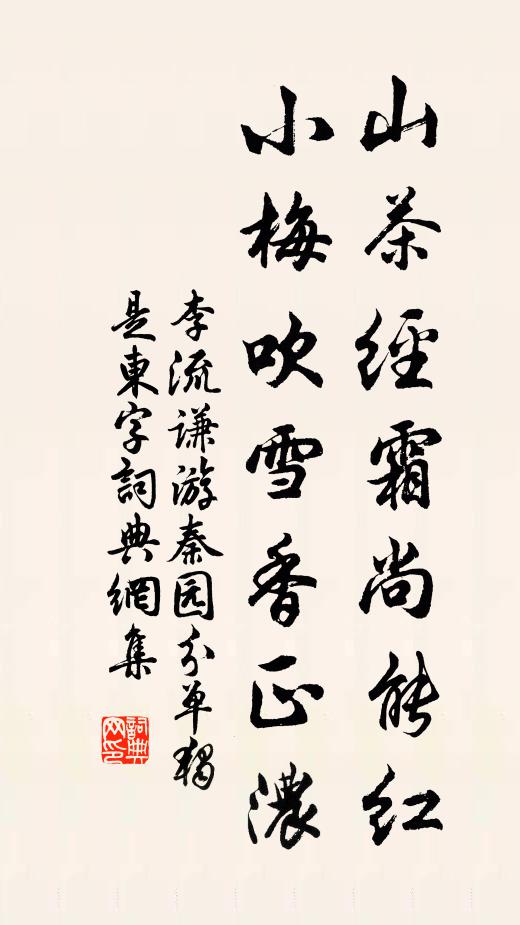 山茶經霜尚能红
小梅吹雪香正濃
李流谦游秦园分单獨
是東字詞典網集
詞典網印